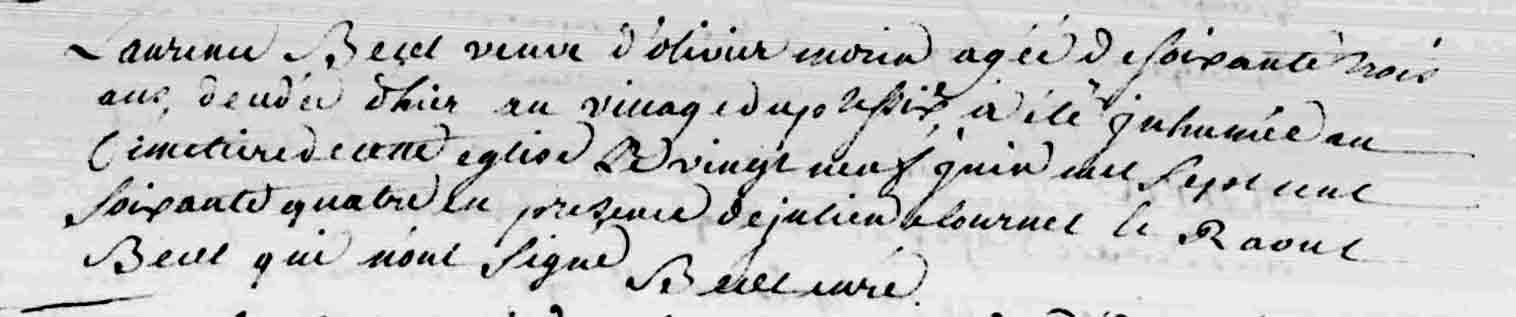 Laurence Becel veuve d'olivier morin agée de soixante trois
ans, decedée d'hier au village du plessix, a été inhumée au
Cimetiere de cette eglise Le vingt neuf juin mil sept cent
soixante quatre en presence de julien et Raoul
Becel qui n'ont signé Becel curé.